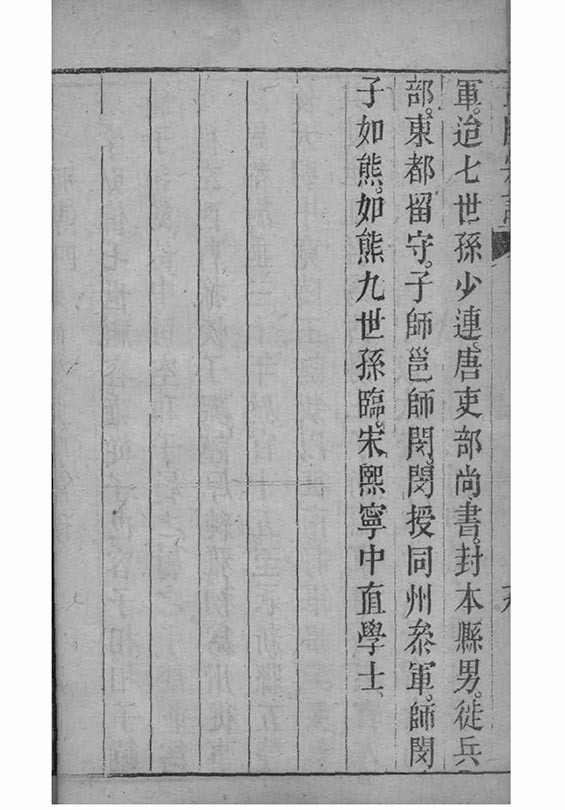 軍。迨七世孫少連。唐吏部尚書。封本縣男。徙兵
部。東都留守。子師邕師閔。閔授同州叅軍。師閔
子如熊。如熊九世孫臨。宋熙寧中直學士、